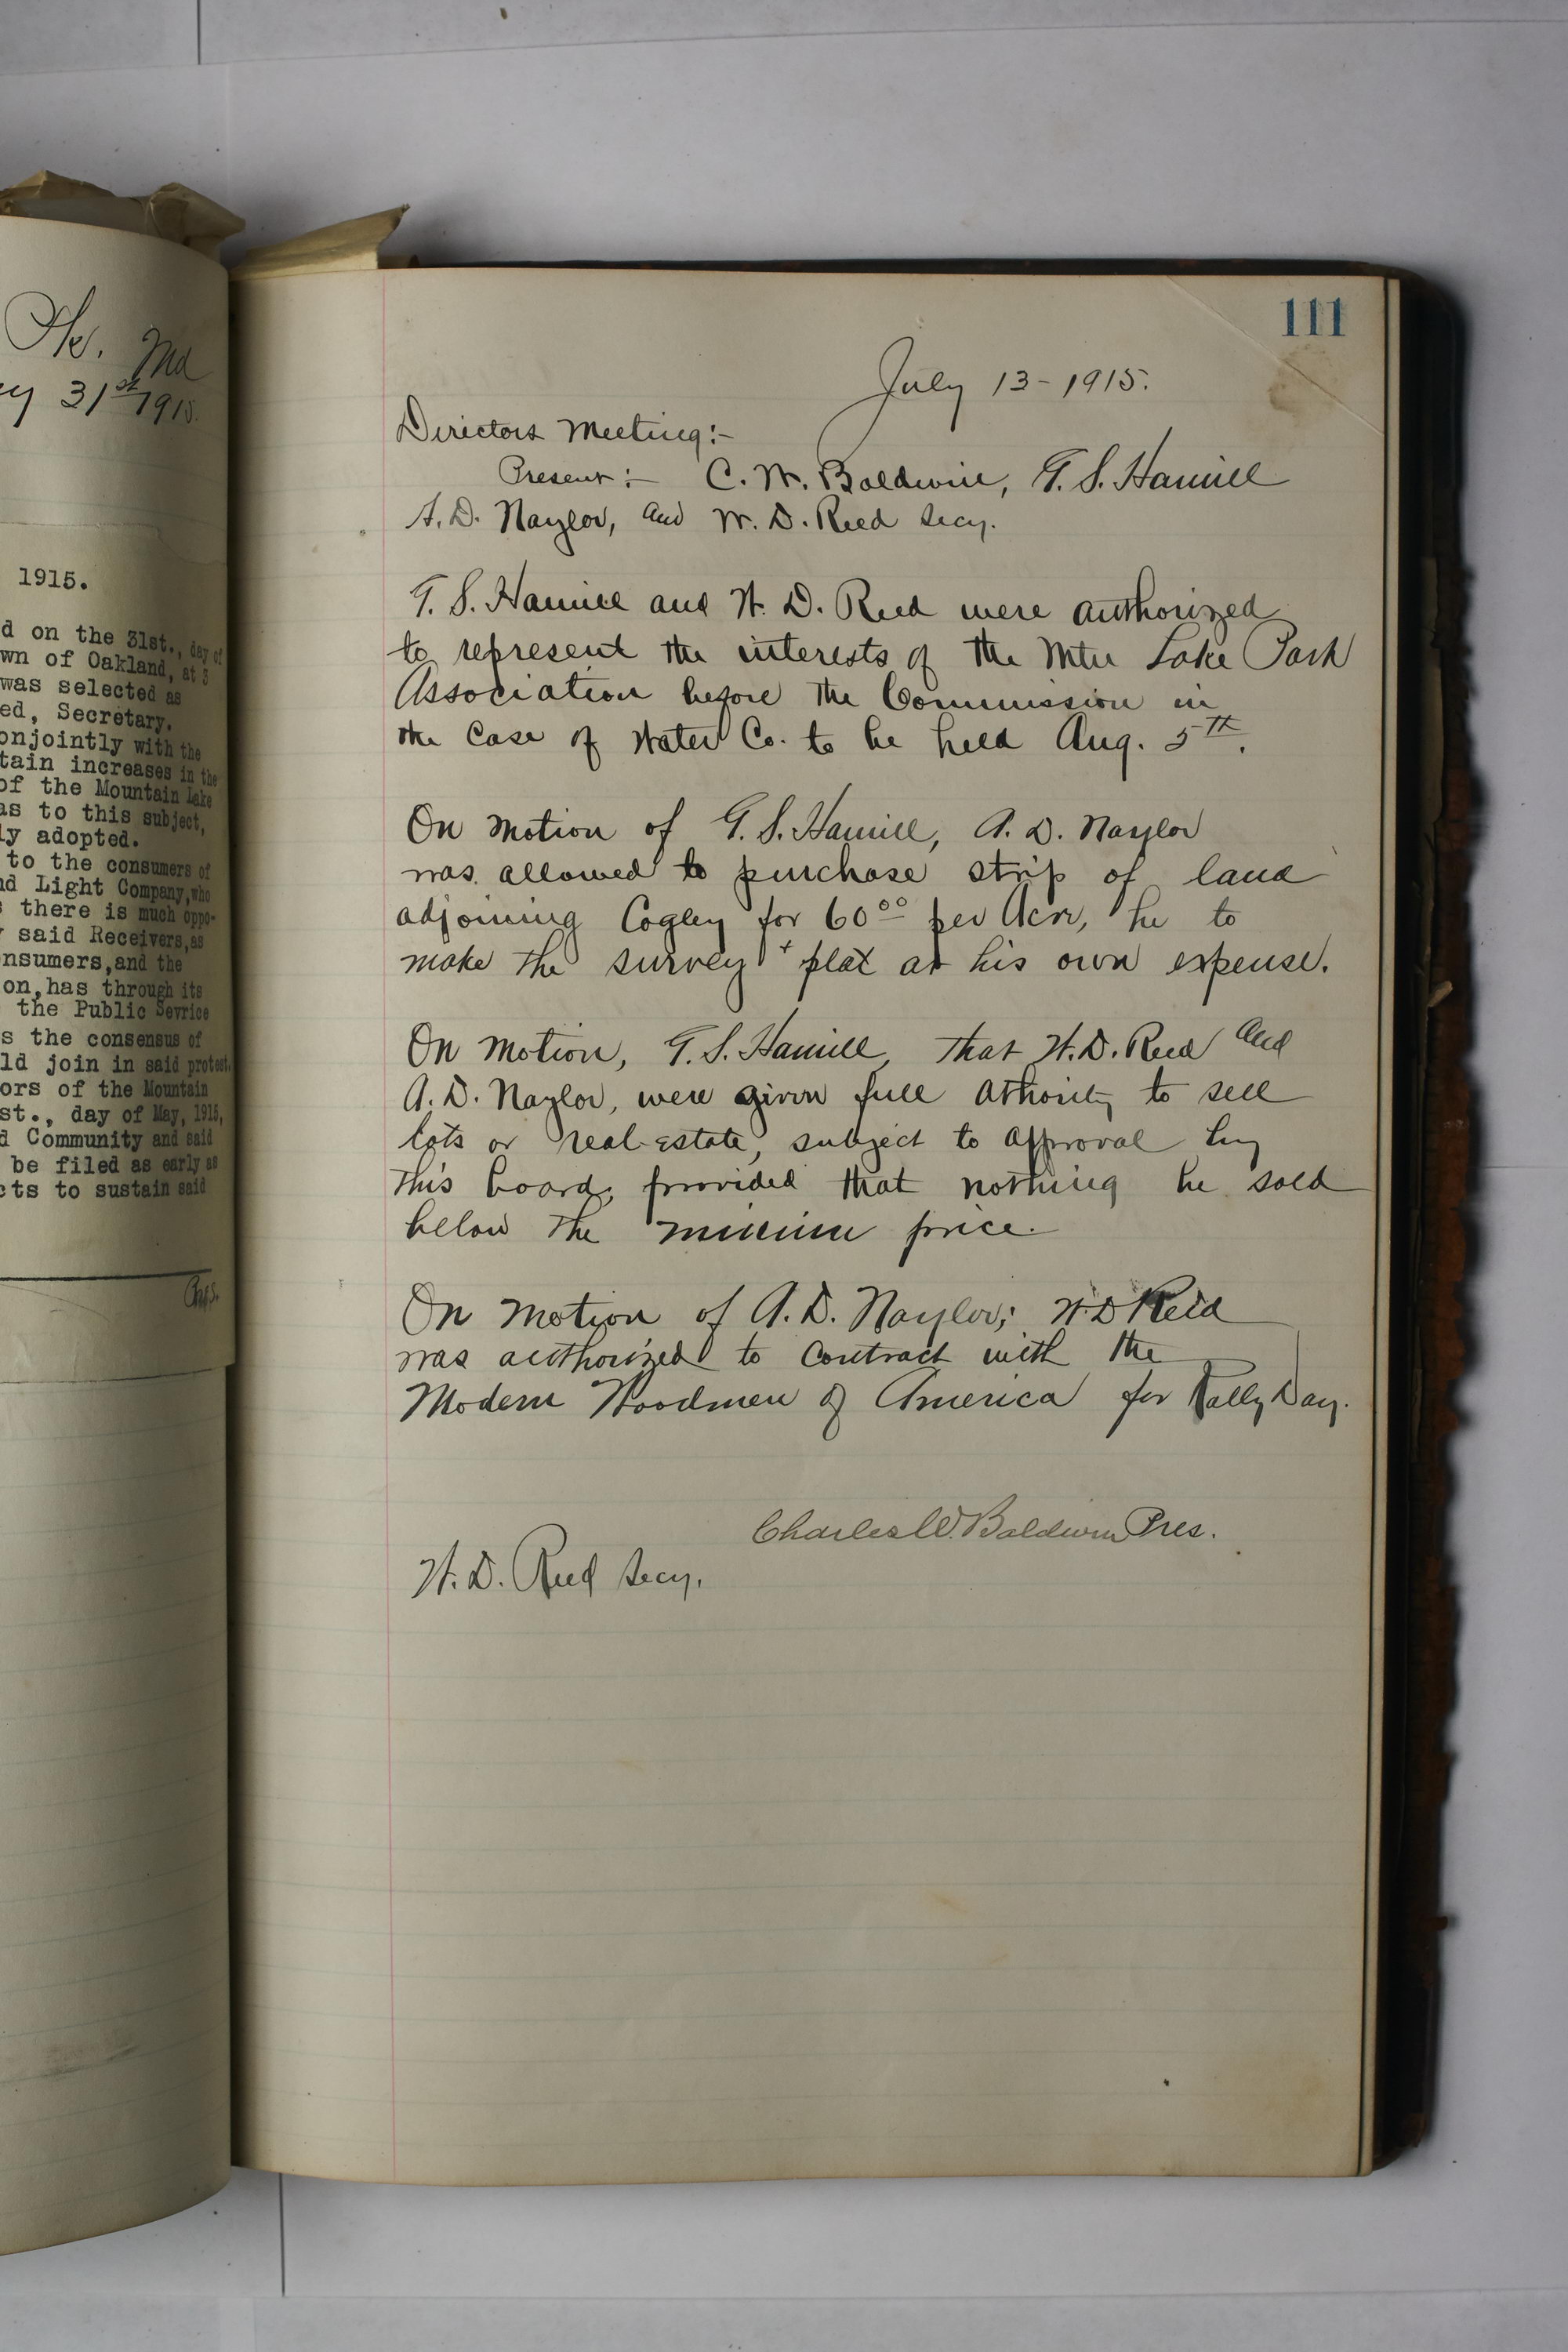 Pk. Md
31st 1915.
1915.
d on the 31st., day of
wn of Oakland, at 3
was selected as
ed, Secretary.
onjointly with the
tain increases in the
of the Mountain Lake
as to this subject,
ly adopted.
to the consumers of
nd Light Company, who
there is much oppo-
said Receivers, as
nsumers, and the
on, has through its
the Public Sevrice
s the consensus of
ld join in said protest.
ors of the Mountain
st., day of May, 1915,
d Community and said
be filed as early as
cts to sustain said
111
July 13 - 1915.
Directors Meeting:-
Present:- C. W. Baldwin, G. S. Hamill
A. D. Naylor, and W. D. Reed Secy.
G. S. Hamill and W. D. Reed were authorized
to represent the interests of the Mtn Lake Park
Association before the Commission in
the Case of Water Co. to be held Aug. 5th.
On motion of G. S. Hamill, A. D. Naylor
was allowed to purchase strip of land
adjoining Cogley for 60 00 per Acre, he to
make the survey + plat at his own expense.
On motion, G. S. Hamill, that W. D. Reed and
A. D. Naylor, were given full athority to sell
lots or real-estate, subject to approval by
this board, provided that nothing be sold
below the minium price.
On motion of A. D. Naylor; W. D Reed
was authorized to contract with the
Modern Woodmen of America for Rally Day.
Charles W. Baldwin Pres.
W. D. Reed Secy.